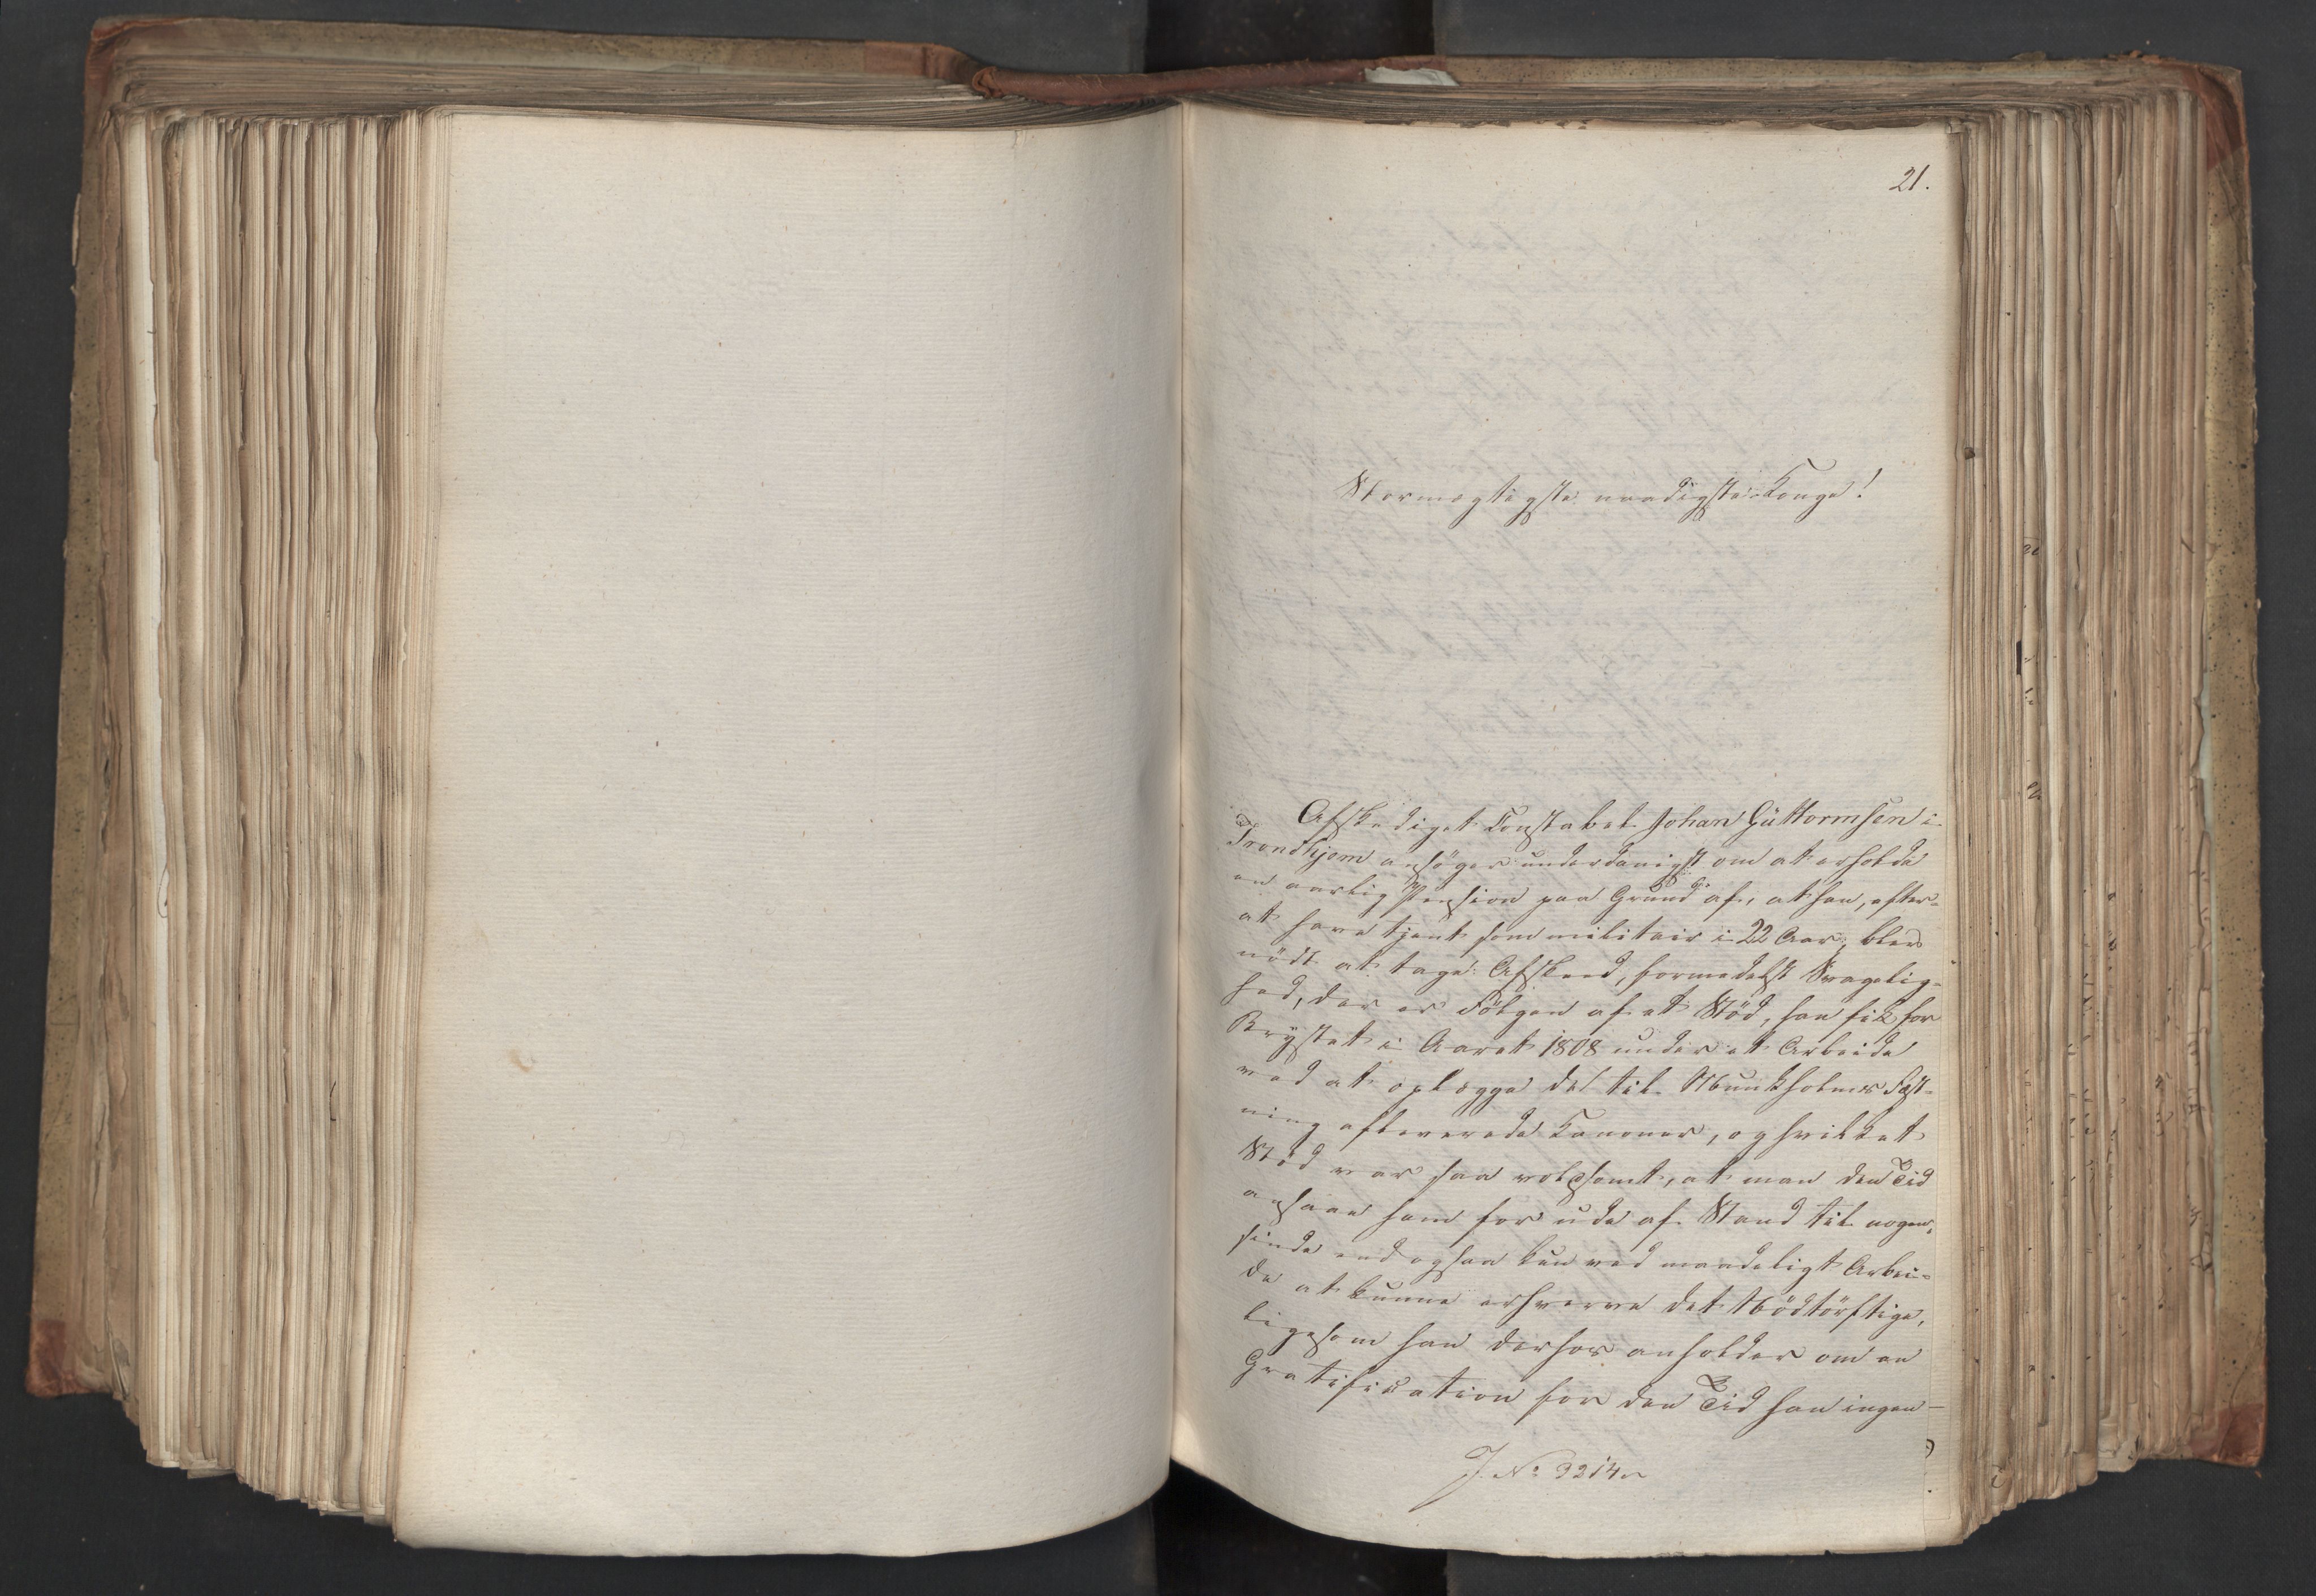 21.
Stormægtigste naadigste Konge!
Afskediget Constabel Johan Guttormsen i
Trondhjem ansöger underdanigst om at erholde
en aarlig Pension paa Grund af, at han, efter-
at have tjent som militair i 22 Aar, blev
nödt at tage Afskeed, formedelst Svagelig-
hed, der er Fölgen af et Stöd, han fik for
Brystet i Aaret 1808 under et Arbeide
ved at oplægge de til Munkholmens Fæst-
ning afleverede Kanoner, og hvilket
Stöd var saa voldsomt, at man den Tid
ansaae ham for ude af Stand til nogen-
sinde endogsaa kun ved maadeligt Arbei-
de at kunne erhverve det Nödtörftige,
ligesom han derfor anholder om en
Gratification for den Tid han ingen
J. No 3214